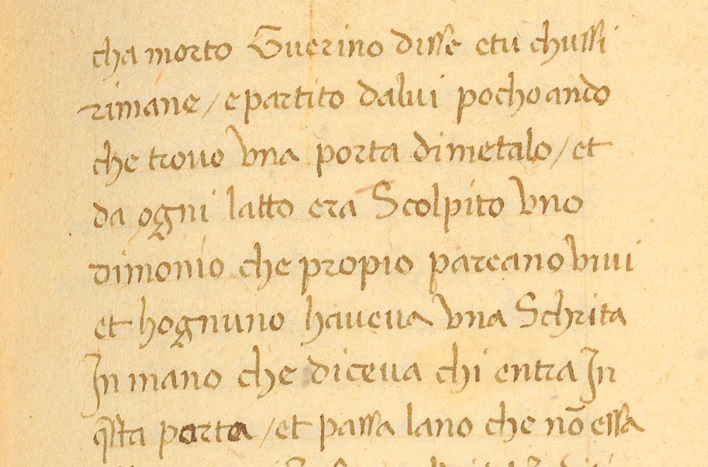 cha morto Guerino disse etu chussi
rimane / epartito dalui pochoando
che trovo vna porta dimetalo / et
da ogni latto era Scolpito vno
dimonio che propio pareano vivi
et hognuno haveva vna Schrita
In mano che diceva chi entra In
q̃sta porta / et passa lano che nõ essa